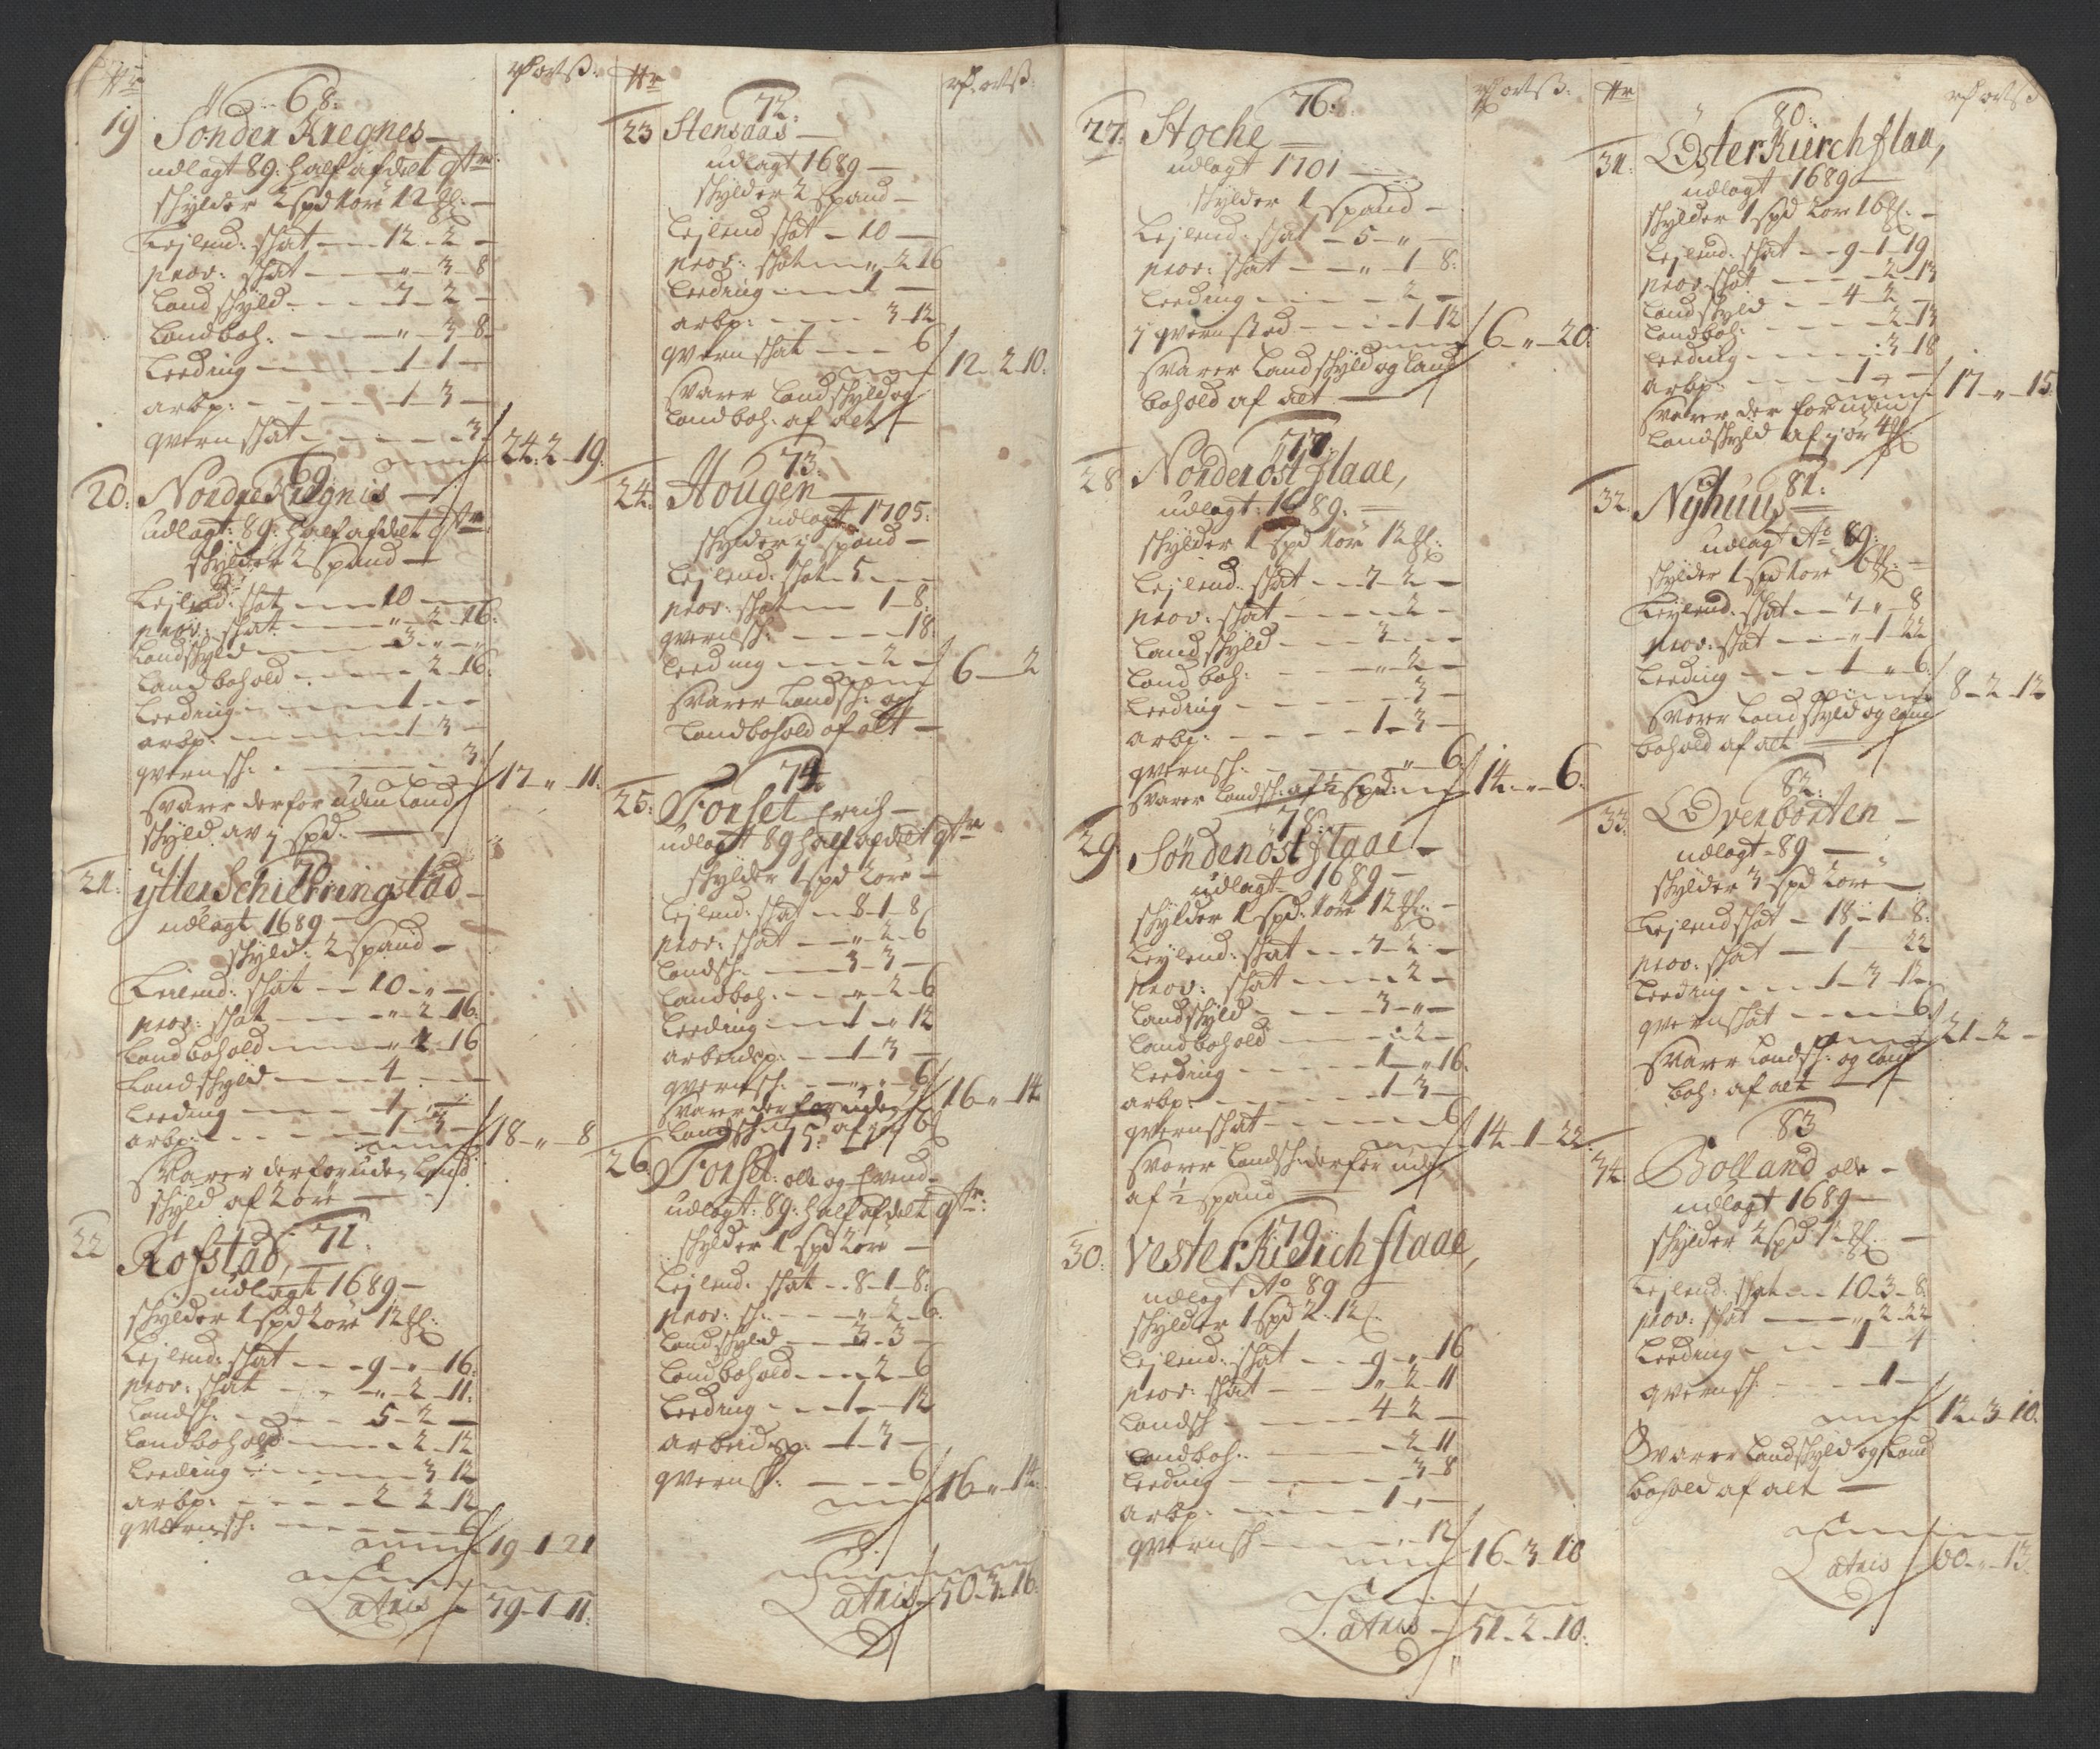 Nr
rd ort ß:
68:
19 Sönder Kregnes
udlagt 89: half afdelt qtr
skylder 2 spd 1 öre 12 ℔:
Lejlend: skat - 12 - 2 -
prov: skat - " - 3 - 8
Land skyld - 7 - 2 -
Landboh: - " - 3 - 8
Leeding - 1 - 1 -
arbp: - 1 - 3 -
qvern skat - 3
24: 2 - 19:
69
20: Nordre Kregnis
udlagt: 89: half afdelt qtr
skylder 2 spand
Lejlend: skat - 10
prov: skat - " - 2 - 16:
Landskyld - 3 - " - "
Landbohold - 2 - 16:
Leeding - 1 - -
arbp: - 1 - 3 -
qvernsk: - 3:
17 - " - 11:
svarer der foruden Land
skyld av j spd:
70
21: ytter Schierringstad
udlagt 1689
skyld: 2 spand
Leilend: skat - 10 - " -
prov: skat - " - 2 - 16:
Landbohold - " - 2 - 16
Landskyld - 4 - -
Leeding - 1 -
arbp: - 1 - 3 -
18 - " - 8
svarer der foruden Land
skyld af 2 öre
71
22 Rofstad,
udlagt 1689
skylder 1 spd 2 öre 12 ℔:
Lejlend: skat - 9 - " - 16:
prov: skat - " - 2 - 11:
Landsk: - 5 - 2 -
Landbohold - 2 - 12
Leeding - 3 - 12
arbp: - 2 - 2 - 12
qvernsk: - 6
19 - 1 - 21
Latris - 79 - 1 - 11:
Nr
rd. ort ß:
72:
23 Stensaas
udlagt 1689
skylder 2 spand
Lejlend skat - 10 -
prov: skat - " - 2 - 16
Leeding - 1 -
arbp: - 3 - 12
qvern skat - 6
12 - 2 - 10:
svarer Landskyld og
Landboh: af alt
73:
24: Hougen
udlagt 1705:
skylder j spand
Lejlend: skat - 5 - -
prov: skat - 1 - 8:
qvernsk: - 18
Leeding - 2 -
6 - 2
svarer Landsk: og
Landbohold af alt
74
25: Forset Erich
udlagt 89 half afdelt qtr
skylder 1 spd 2 öre
Lejlend: skat - 8 - 1 - 8
prov: skat - " - 2 - 6
Landsk: - 3 - 3 -
Landboh: - " - 2 - 6
Leeding - 1 - " - 12
arbeidsp: - 1 - 3 -
qvernsk: - " - 6
16 - " - 14
svarer der foruden
75:
26 Forset: ole og Evend
udlagt: 89: half afdelt qtr:
skylder 1 spd 2 öre
Lejlend: skat - 8 - 1 - 8:
prov: sk: - " - 2 - 6:
Landskyld - 3 - 3 -
Landbohold - 2 - 6
Leeding - 1 - 12
arbeidsp: - 1 - 3 -
qvernsk: - 6
16 - " - 14:
Latris - 50 - 3 - 16:
rd ort ß:
76:
27: Stoche
udlagt 1701
skylder 1 spand
Lejlend: skat - 5 - " -
prov: skat - " - 1 - 8:
Leeding - 2 -
j qvernsted - 1 - 12
6 - " - 20:
svarer Landskyld og Land
bohold af alt
77:
28 Norder östflaae,
udlagt: 1689:
skylder 1 spd 1 öre 12 ℔:
Lejlend: skat - 7 - 2 -
prov: skat - 2 -
Landskyld - 3 - -
Landboh: - " - 2 -
Leeding - 3 -
arbp: - 1 - 3 -
qvernsk: - " - 6:
14 - " - 6:
svarer Landsk: af ½ spd:
78:
29 Sönder östflaae
udlagt 1689
skylder 1 spd: 1 öre 12 ℔:
Leylend: skat - 7 - 2 -
prov: skat - 2 -
Landskyld - 3 - " -
Landbohold - 2 -
Leeding - 1 - " - 16:
arbp: - 1 - 3 -
qvernskat - 6
14 - 1 - 22:
svarer Landsk: der foruden
af ½ spand
79
30: Vester Kierichflaae,
udlagt Ao 89
skylder 1 spd 2 - 12
Lejlend: skat - 9 - " - 16
prov: skat - " - 2 - 11
Landsk - 4 - 2 -
Landboh: - 2 - 11
Leeding - 3 - 8
arbp: - 1 - " -
qvernsk - 12
16 - 3 - 10
Latris - 51 - 2 - 10:
Nr
rd ort ß
80:
31: Öster Kierchflaa,
udlagt 1689
skylder 1 spd 2 öre 16 ℔:
Lejlend: skat - 9 - 1 - 19
prov: skat - 2 - 13
Landskyld - 4 - 2 -
Landboh: - 2 - 13
Leeding - 3 - 18
arbp: - 1 - " -
17 - " - 15
svarer der foruden
Landskyld af j ör 4 ℔
81:
32: Nyhuus
udlagt Ao 89:
skylder 1 spd 1 öre 6 ℔:
Leylend: skat - 7 - " - 8
prov: skat - " - 1 - 22
Leeding - 1 - " - 6:
8 - 2 - 12
svarer Landskyld og Land
bohold af alt
82:
33: Överborten
udlagt 89
skylder 3 spd 2 öre
Lejlend skat - 18 - 1 - 8:
prov: skat - 1 - 22
Leeding - 1 - 3 - 12
qvernskat - 6
21 - 2 -
svarer Landsk: og Land
boh: af alt
83
34: Bolland ole
udlagt 1689
skylder 2 spd
Lejlend: skat - 10 - 3 - 8
prov: skat - " - 2 - 22
Leeding - 1 - 4
qvernsk: - 1 -
12 - 3 - 10:
Svarer Landskyld og Land
bohold af alt
Latris - 60 - " - 13.